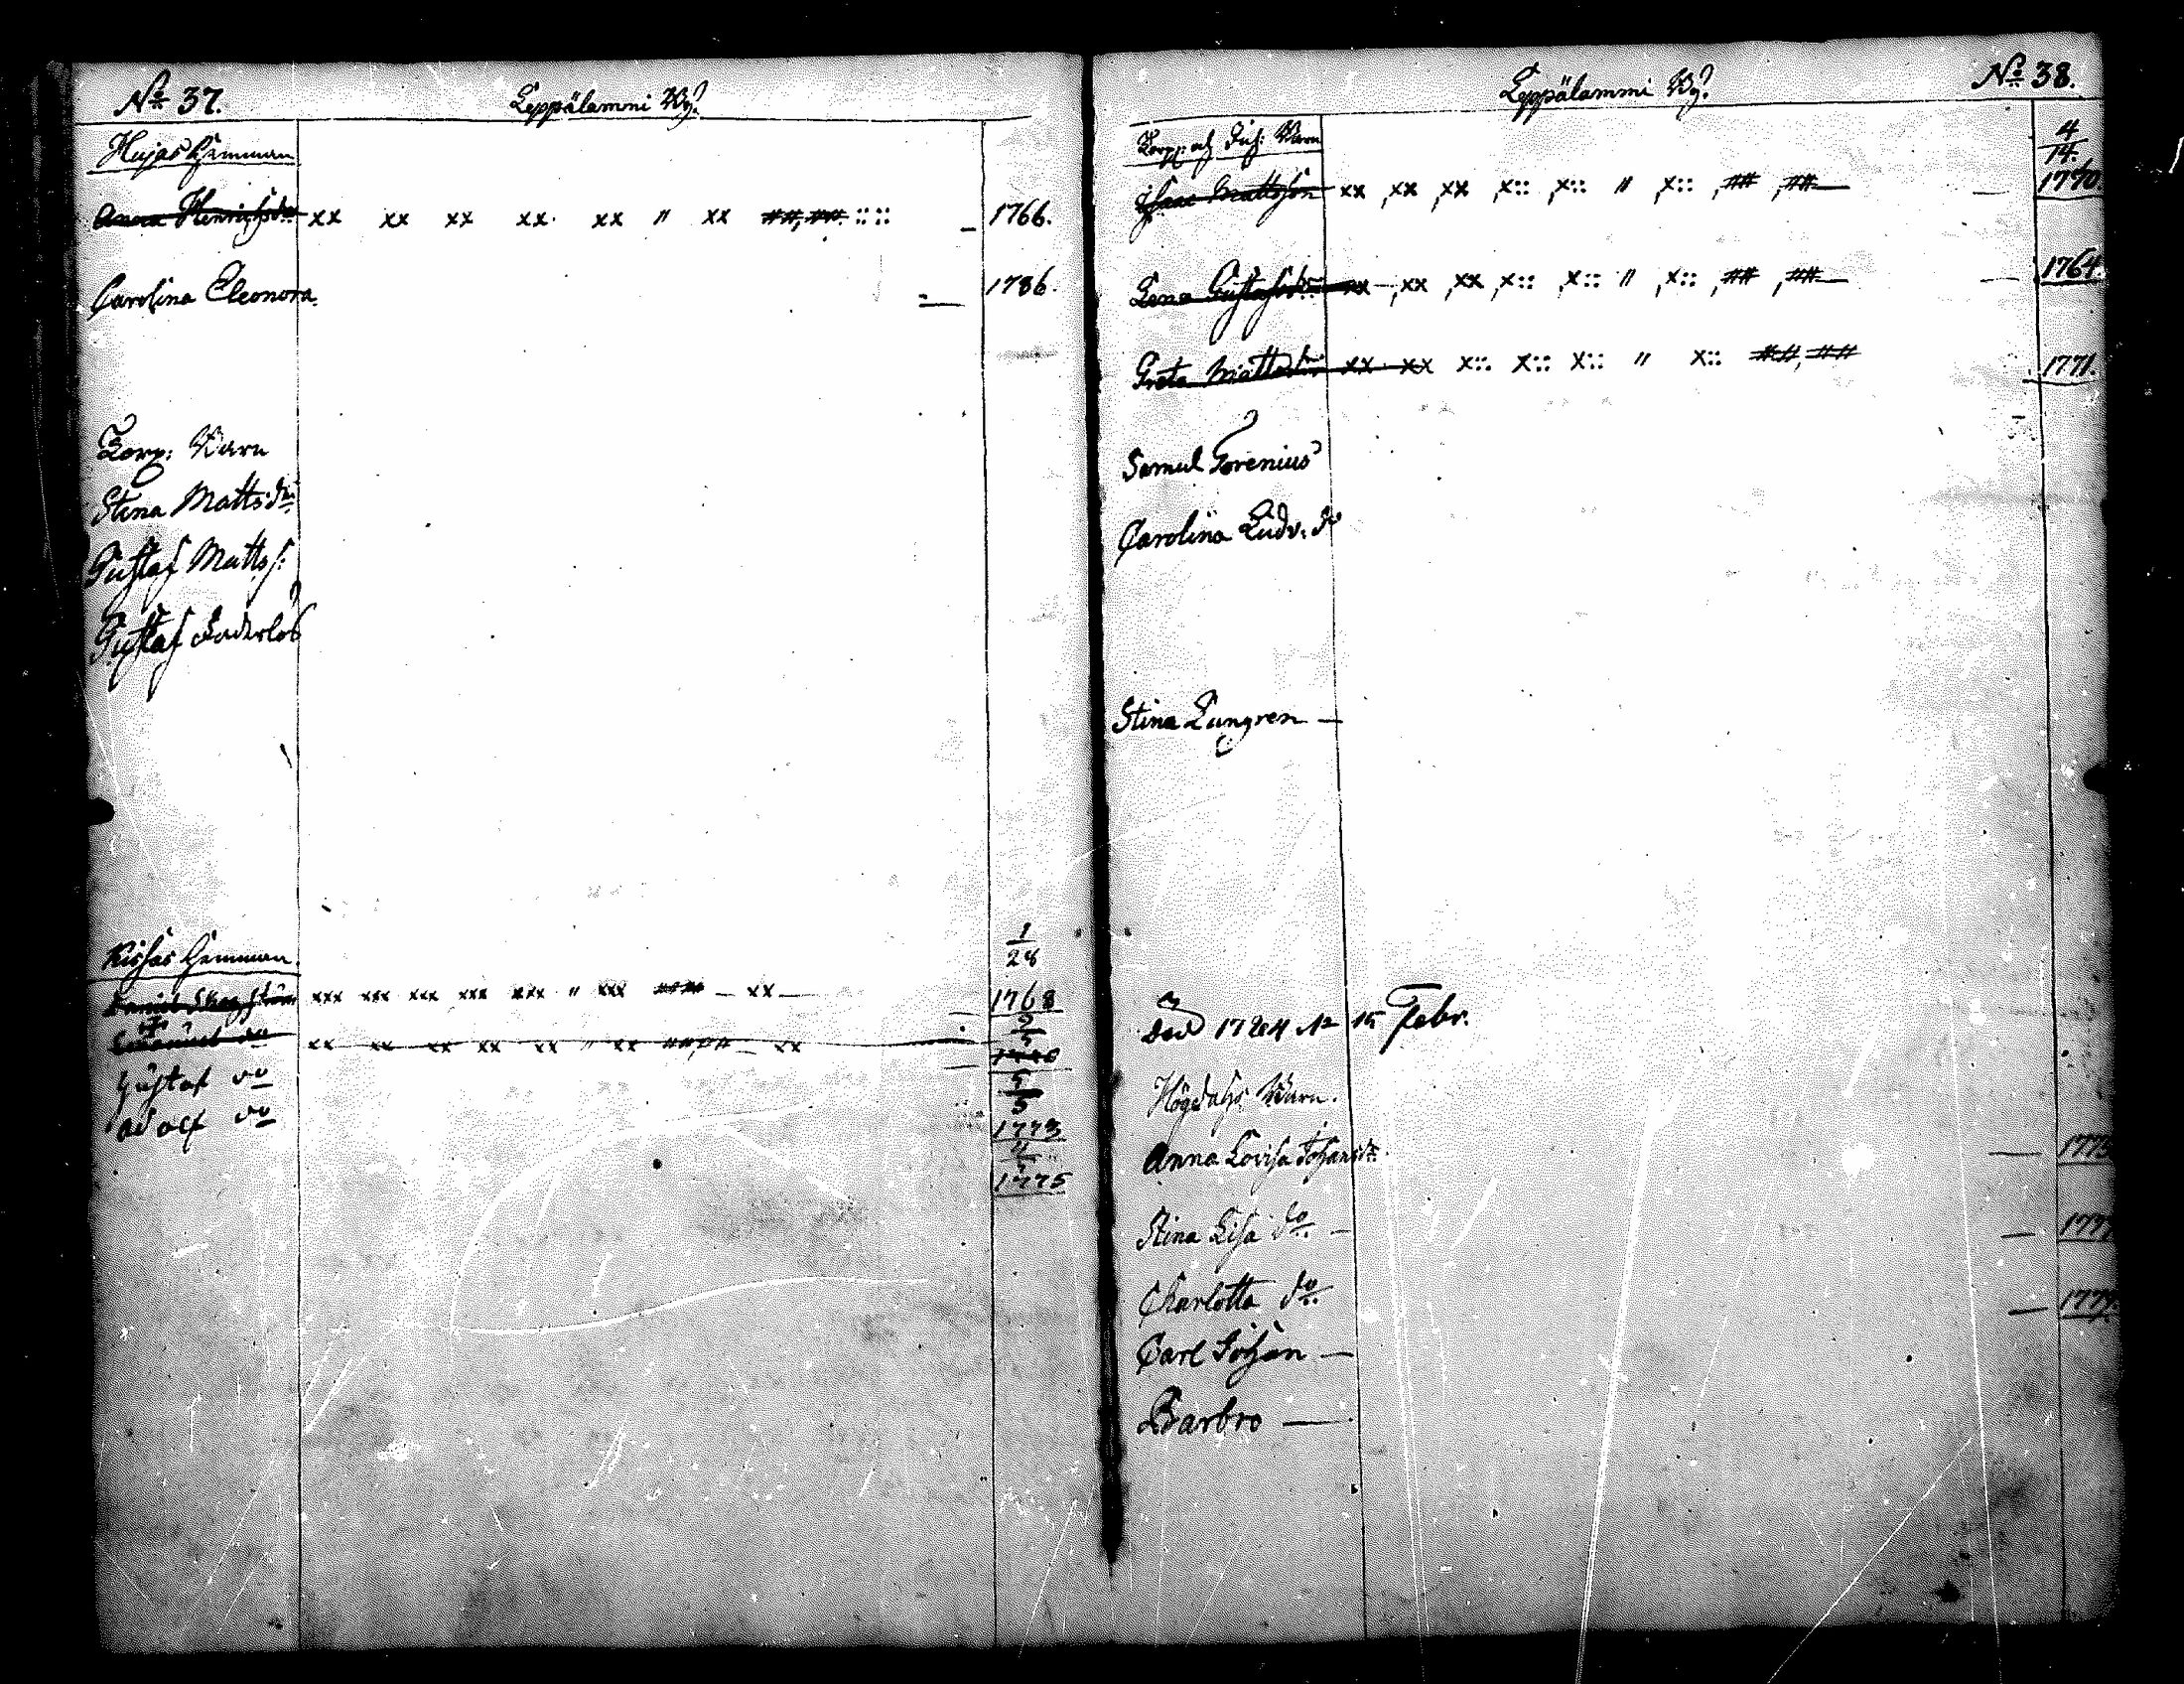 No 37.
Leppälammi By
Hujas Hemman
Anna Henrichsdr xx xx xx xx. xx " xx ##,##. :: :: 1766.
Carolina Eleonora. 1786.
Torp: Barn
Stina Matts:dr
Gustaf Matts s:
Gustaf Faderlös
1/28
Hemman.
xxx xxx xxx xxx xxx " xxx #### – xx – 1768
do xx xx xx xx xx " xx ##,## – xx
Gustaf do
1773
Adolf do
1775
No 38.
Leppälammi By
Torp: och Inh: Barn
4/14.
Isaac Mattsson xx ,xx ,xx ,x:: ,x:: " x:: ,## ,## – 1770.
Lena Gustafsdr xx ,xx ,xx ,x:: ,x:: " ,x:: ,## ,## – 1764.
Greta Mattsdr xx xx x:: x:: x:: " x:: ##,## 1771.
Samul Forenius
Carolina Ludv: dr
Stina Lungren –
Febr.
Högdahls Barn.
Anna Lovisa Johansdr. 1775
Stina Lisa do – 177
Charlotta do 1779.
Carl Johan –
Barbro –